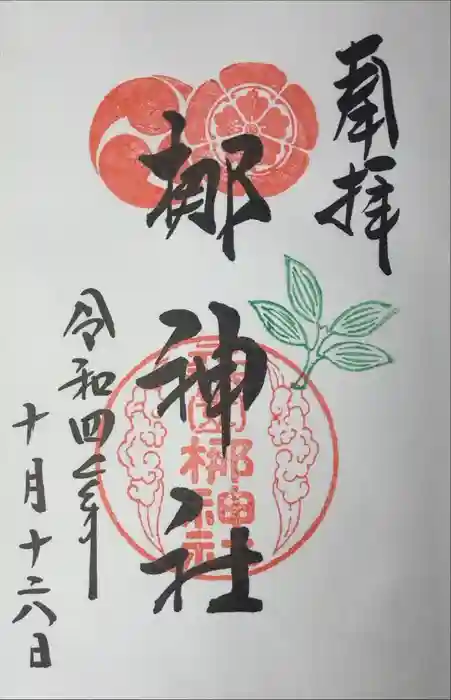 奉拝
梛神社
元祇園梛神社
令和四年
十月十六日